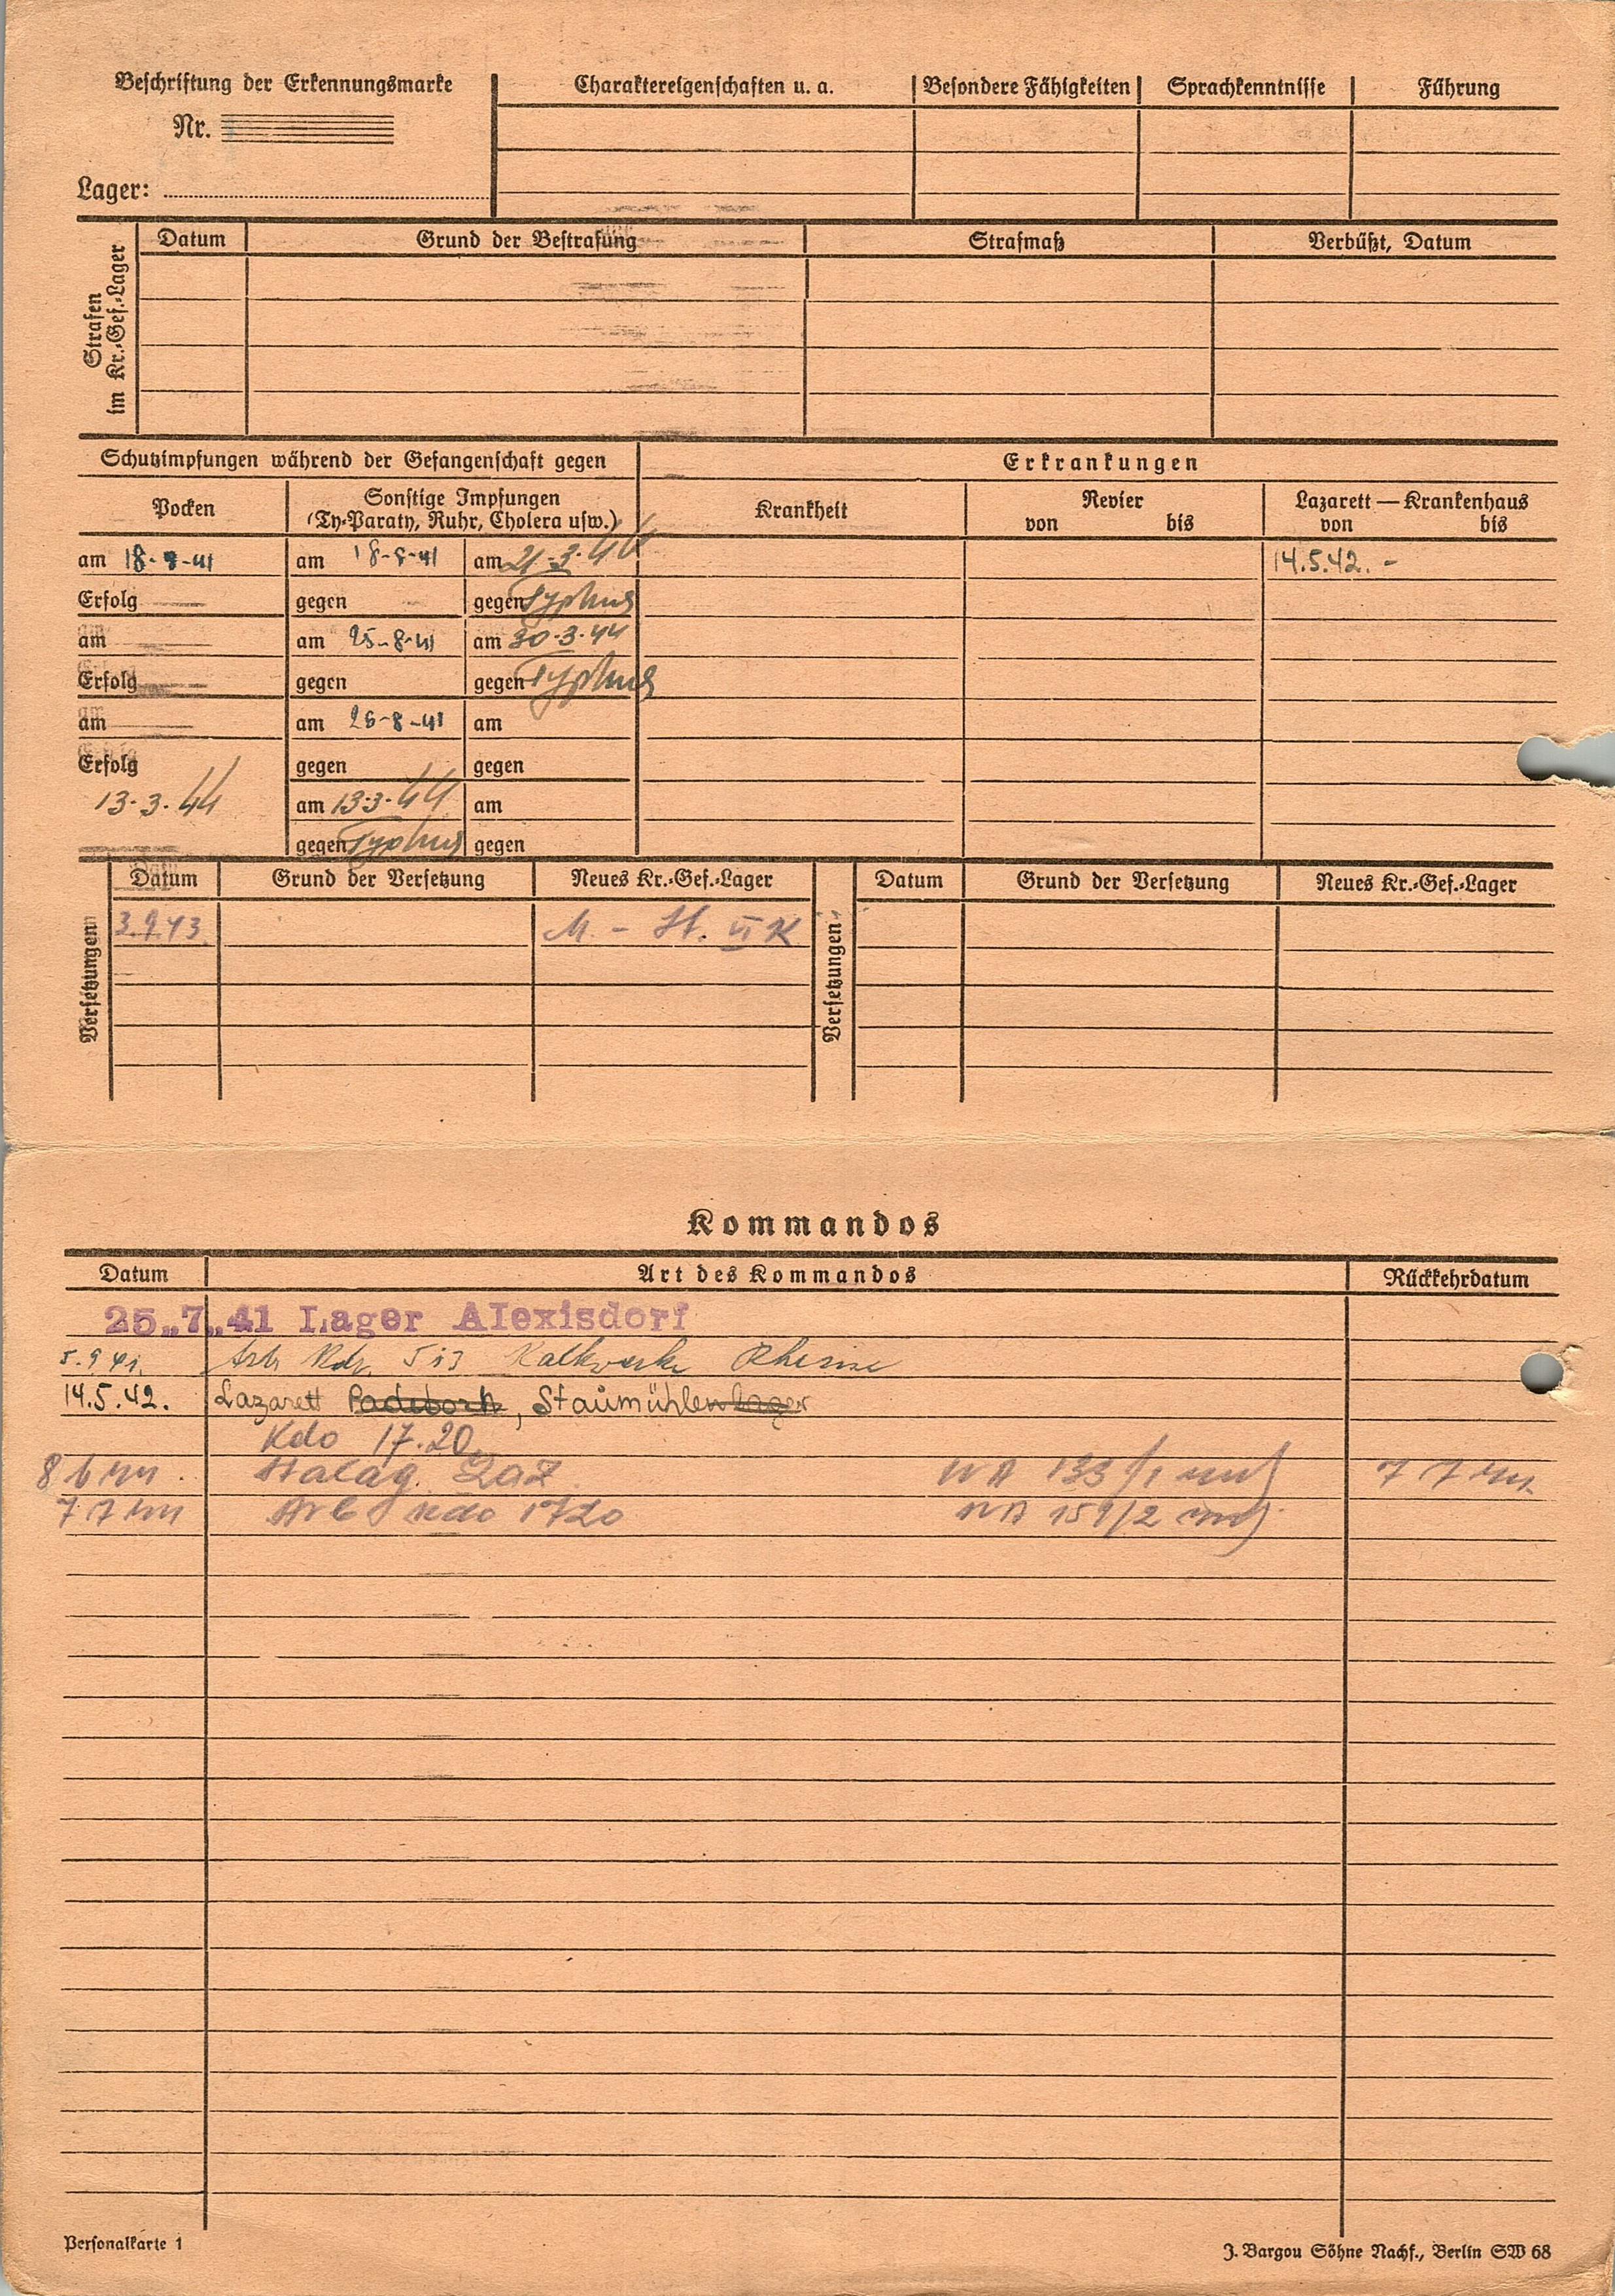 Beschriftung der Erkennungsmarke
Nr.
Lager:
Charaktereigenschaften u. a. Besondere Fähigkeiten Sprachkenntnisse Führung
Strafen
im Kr.-Gef.-Lager
Datum Grund der Bestrafung Strafmaß Verbüßt, Datum
Schutzimpfungen während der Gefangenschaft gegen
Erkrankungen
Pocken
Sonstige Impfungen
(Ty-Paraty, Ruhr, Cholera usw.)
Krankheit
Revier
von bis
Lazarett — Krankenhaus
von bis
am 18-8-41 am 18-8-41 am 21-3-44 14.5.42. -
Erfolg gegen gegen Typhus
am am 25-8-41 am 30-3-44
Erfolg gegen gegen Typhus
am am 26-8-41 am
Erfolg gegen gegen
13-3-44 am 13-3-44 am
gegen Typhus gegen
Versetzungen
Datum Grund der Versetzung Neues Kr.-Gef.-Lager
3.9.43. M. - St. VI K
Versetzungen
Datum Grund der Versetzung Neues Kr.-Gef.-Lager
Kommandos
Datum Art des Kommandos Rückkehrdatum
25.7.41 Lager Alexisdorf
5.9.41. Arb. Kdo. 513 Kalkwerke Rheine
14.5.42. Lazarett Paderborn, Staumühlenlager
Kdo 17.20
8 6 44. Stalag. 7 7 44.
7 7 44 Arb Kdo 1720
Personalkarte 1
J. Bargou Söhne Nachf., Berlin SW 68